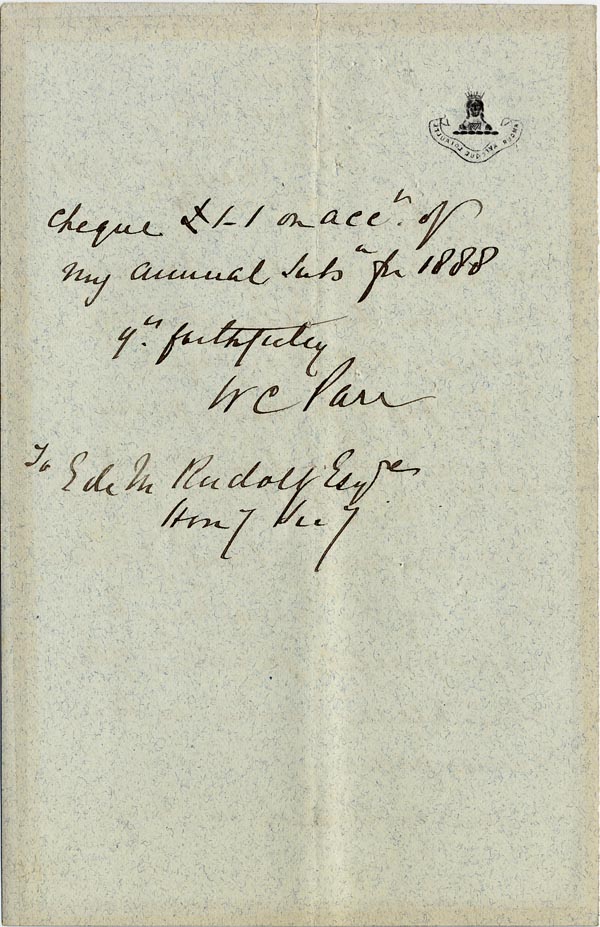 cheque £1-1 on accn. of
my annual Subsn for 1888
yrs. faithfully
W C Parr
To Ed. M Rudolf Esqre
Hony Secy